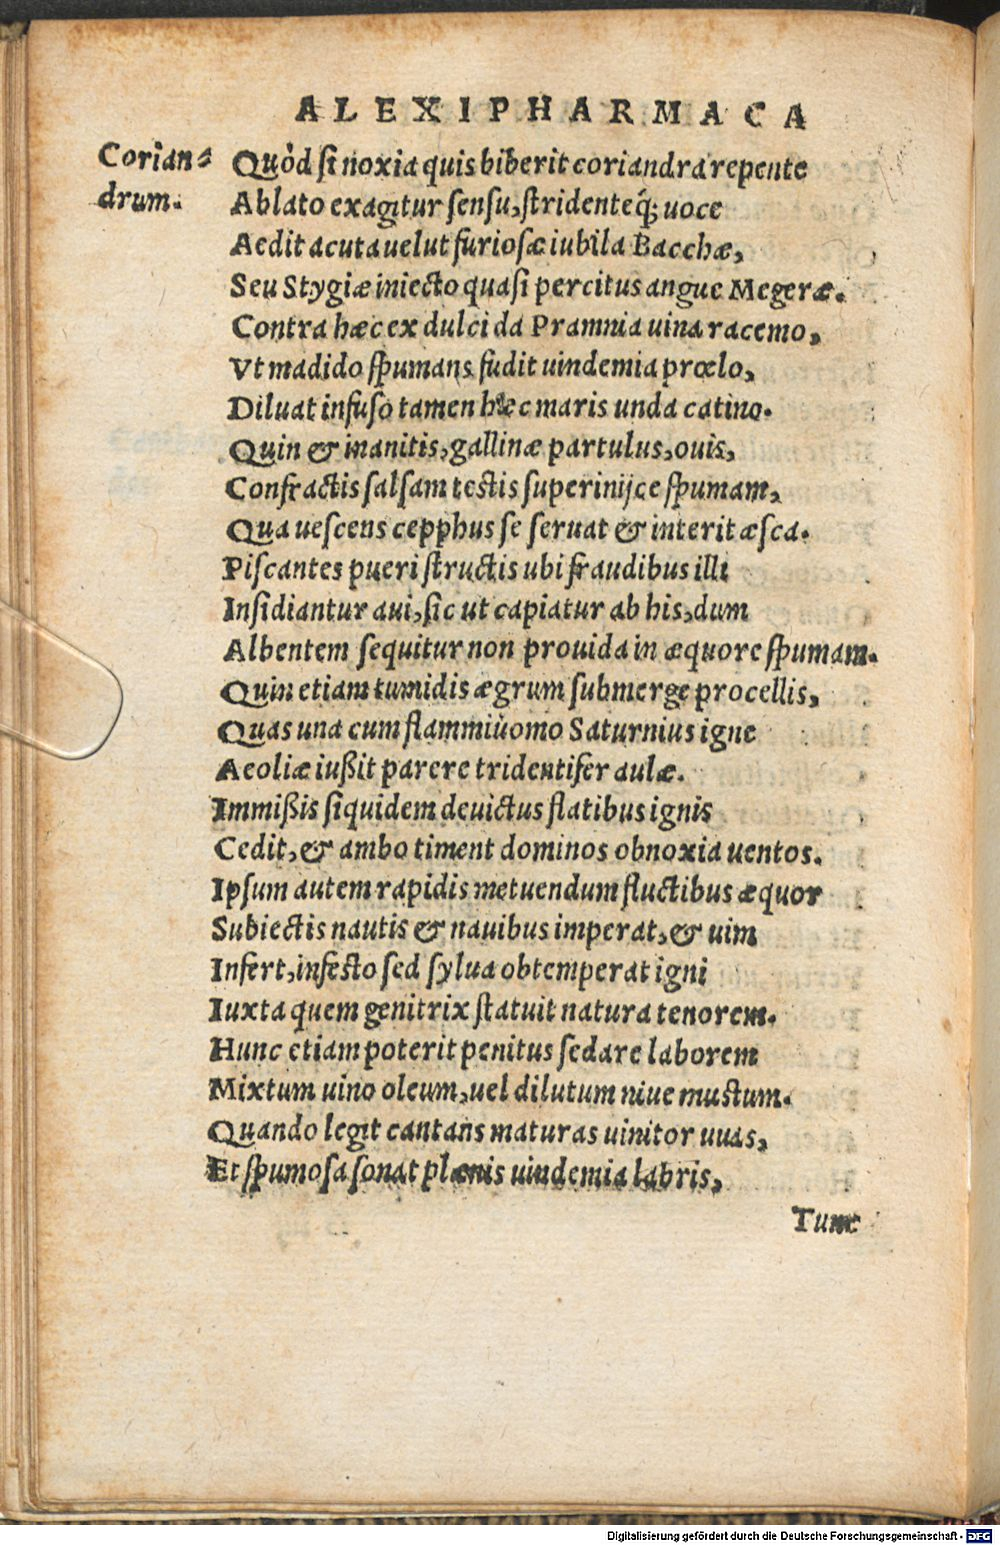 ALEXIPHARMACA
Corian⸗
drum.
Quòd si noxia quis biberit coriandra repente
Ablato exagitur sensu, stridenteq́; uoce
Aedit acuta uelut furiosæ iubila Bacchæ,
Seu Stygiæ iniecto quasi percitus angue Megeræ.
Contra hæc ex dulci da Pramnia uina racemo,
Vt madido spumans fudit uindemia prœlo,
Diluat infuso tamen hæc maris unda catino.
Quin & inanitis, gallinæ partulus, ouis,
Confractis salsam testis superinijce spumam,
Qua uescens cepphus se seruat & interit æsca.
Piscantes pueri structis ubi fraudibus illi
Insidiantur aui, sic ut capiatur ab his, dum
Albentem sequitur non prouida in æquore spumam.
Quin etiam tumidis ægrum submerge procellis,
Quas una cum flammiùomo Saturnius igne
Aeoliæ iußit parere tridentifer aulæ.
Immißis siquidem deuictus flatibus ignis
Cedit, & ambo timent dominos obnoxia uentos.
Ipsum autem rapidis metuendum fluctibus æquor
Subiectis nautis & nauibus imperat, & uim
Infert, infesto sed sylua obtemperat igni
Iuxta quem genitrix statuit natura tenorem.
Hunc etiam poterit penitus sedare laborem
Mixtum uino oleum, uel dilutum niue mustum.
Quando legit cantans maturas uinitor uuas,
Et spumosa sonat plænis uindemia labris,
Tunc
Digitalisierung gefördert durch die Deutsche Forschungsgemeinschaft - DFG